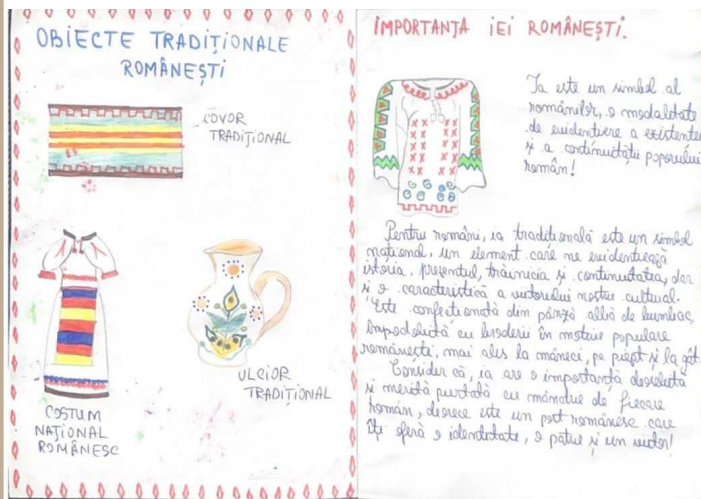 OBIECTE TRADIȚIONALE
ROMÂNEȘTI
COVOR
TRADIȚIONAL
ULCIOR
TRADIȚIONAL
COSTUM
NAȚIONAL
ROMÂNESC
IMPORTANȚA IEI ROMÂNEȘTI.
Ia este un simbol al
românilor, o modalitate
de evidențiere a existenței
și a continuității poporului
român!
Pentru români, ia tradițională este un simbol
național, un element care ne evidențiază
istoria, prezentul, trăinicia și continuitatea, dar
și o caracteristică a viitorului nostru cultural.
Este confecționată din pânză albă de bumbac,
împodobită cu broderii în motive populare
românești, mai ales la mâneci, pe piept și la gât.
Consider că, ia are o importanță deosebită
și merită purtată cu mândrie de fiecare
român, deorece este un port românesc care
îți oferă o identitate, o patrie și un viitor!